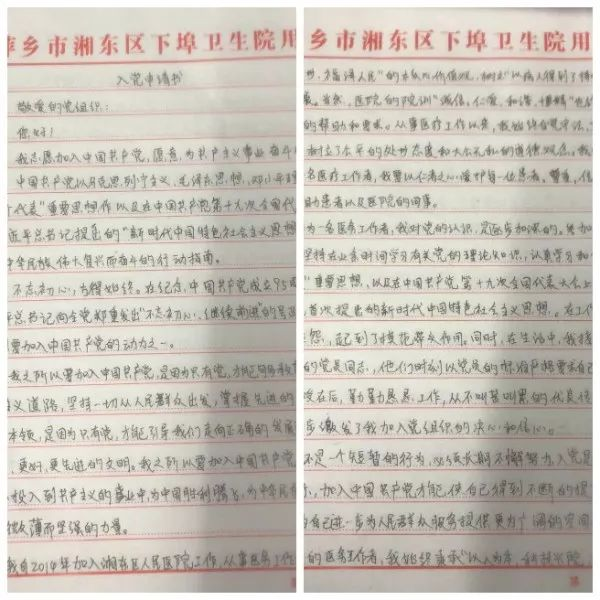 乡市湘东区下埠卫生院用
入党申请书
敬爱的党组织:
您好!
我志愿加入中国共产党,愿意为共产主义事业奋斗
中国共产党以马克思列宁主义、毛泽东思想、邓小平理
个代表"重要思想作以及在中国共产党第十九次全国代
近平总书记提出的"新时代中国特色社会主义思想
中华民族伟大复兴而奋斗的行动指南。
不忘初心,方得始终。在纪念中国共产党成立95周
平总书记向全党郑重发出"不忘初心、继续前进"的号召
要加入中国共产党的动力之一。
我之所以要加入中国共产党,是因为只有党,才能
义道路,坚持一切从人民群众出发,掌握先进的
本领,是因为只有党,才能引导我们走向正确的发展
、更好、更先进的文明。我之所以要加入中国共产党
投入到共产主义的事业中,为中国胜利腾飞,为中华民
微薄而坚强的力量。
我自2014年加入湘东区人民医院工作,从事医务工作
乡市湘东区下埠卫生院用
"的核心价值观,树立"以病人得到了
医院的院训"诚信、仁爱、和谐、博精"
的帮助和要求。从事医疗工作以来,我始终
树立了公平的处事态度和大公无私的道德观念。我
名医务工作者,我要以仁者之心爱护每一位患者,尊重、信
助患者以及医院的同事。
为一名医务工作者,我对党的认识,是逐步加深的。
坚持在业余时间学习有关党的理论知识,认真学习和
"重要思想,以及在中国共产党第十九次全国代表大会上
首次提出的新时代中国特色社会主义思想。在工
怨,起到了模范带头作用,同时,在生活中,我接
的党员同志,他们时刻以党员的标准严格要求自己
在后,勤勤恳恳工作,从不叫苦叫累的优良
激发了我加入党组织的决心和信心。
不是一个短暂的行为,必须长期不懈努力,入党是
加入中国共产党才能使自己得到不断的提
为自己进一步为人民群众服务提供更为广阔的空间
的医务工作者,我始终秉承"以人为本,